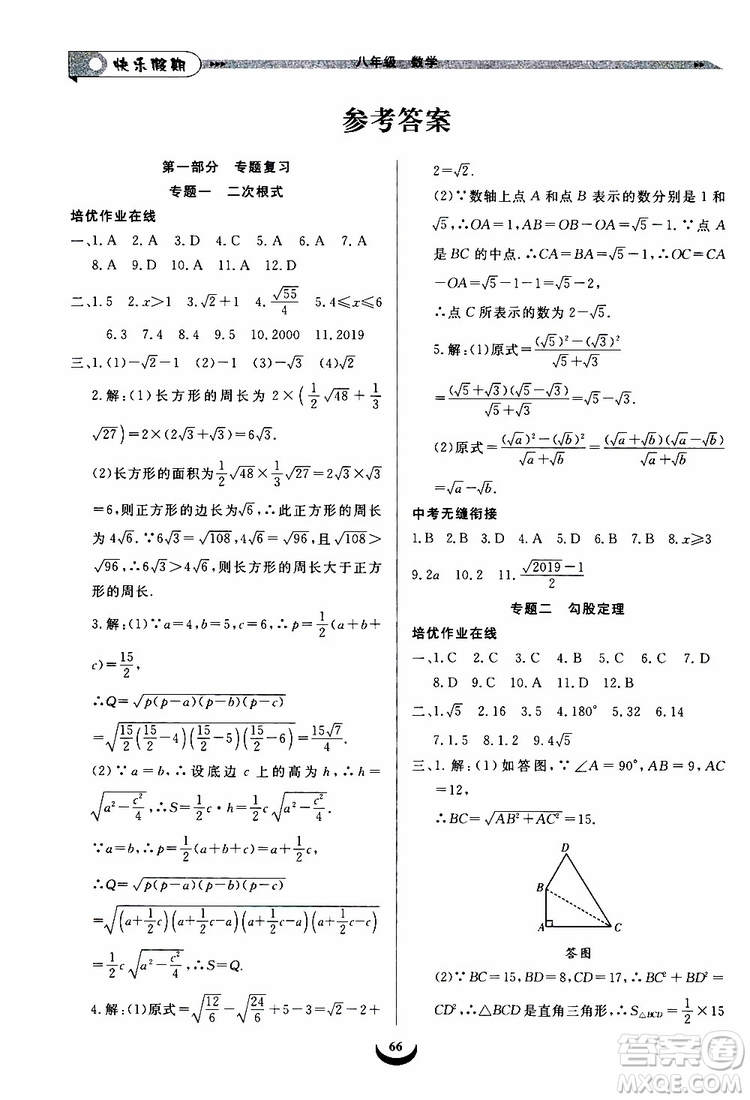 快乐假期
八年级 数学
参考答案
第一部分 专题复习
专题一 二次根式
培优作业在线
一、1.A 2.A 3.D 4.C 5.B 6.A 7.A
8.A 9.D 10.A 11.A 12.D
二、1.5 2.x>1 3.√2+1 4.√55/4 5.4⩽x⩽6
6.3 7.4 8.4 9.5 10.2000 11.2019
三、1.(1)-√2-1 (2)-1 (3)-√3 (4)√2
2.解:(1)长方形的周长为 2×(1/2√48+1/3
√27)=2×(2√3+√3)=6√3.
(2)长方形的面积为1/2√48×1/3√27=2√3×√3
=6,则正方形的边长为√6,∴此正方形的周长
为4√6.∵6√3=√108,4√6=√96,且√108>
√96,∴6√3>4√6,则长方形的周长大于正方
形的周长.
3.解:(1)∵a=4,b=5,c=6,∴p=1/2(a+b+
c)=15/2,
∴Q=√(p(p-a)(p-b)(p-c))
=√(15/2(15/2-4)(15/2-5)(15/2-6))=15√7/4.
(2)∵a=b,∴设底边 c 上的高为 h,∴h=
√(a²-c²/4),∴S=1/2c·h=1/2c√(a²-c²/4).
∵a=b,∴p=1/2(a+b+c)=a+1/2c,
∴Q=√(p(p-a)(p-b)(p-c))
=√((a+1/2c)(a+1/2c-a)(a+1/2c-a)(a+1/2c-c))
=1/2c√(a²-c²/4),∴S=Q.
4.解:(1)原式=√(12/6)-√(24/6)+5-3=√2-2+
2=√2.
(2)∵数轴上点 A 和点 B 表示的数分别是 1 和
√5,∴OA=1,AB=OB-OA=√5-1.∵点 A
是 BC 的中点.∴CA=BA=√5-1.∴OC=CA
-OA=√5-2.
∴点 C 所表示的数为2-√5.
5.解:(1)原式=((√5)²-(√3)²)/(√5+√3)
=(√5+√3)(√5-√3)/(√5+√3)=√5-√3.
(2)原式=((√a)²-(√b)²)/(√a+√b)=(√a+√b)(√a-√b)/(√a+√b)
=√a-√b.
中考无缝衔接
1.B 2.B 3.D 4.A 5.D 6.B 7.B 8.x⩾3
9.2a 10.2 11.(√2019-1)/2
专题二 勾股定理
培优作业在线
一、1.C 2.C 3.D 4.A 5.C 6.C 7.D
8.D 9.D 10.C 11.B 12.C
二、1.√5 2.16 3.5 4.180° 5.32 6.14
7.1.5 8.1.2 9.4√5
三、1.解:(1)如答图,∵∠A=90°,AB=9,AC
=12,
∴BC=√(AB²+AC²)=15.
D
B
A
C
答图
(2)∵BC=15,BD=8,CD=17,∴BC²+BD²=
CD²,∴△BCD是直角三角形,∴S△BCD=1/2×15
66
答案卷
MXQE.COM